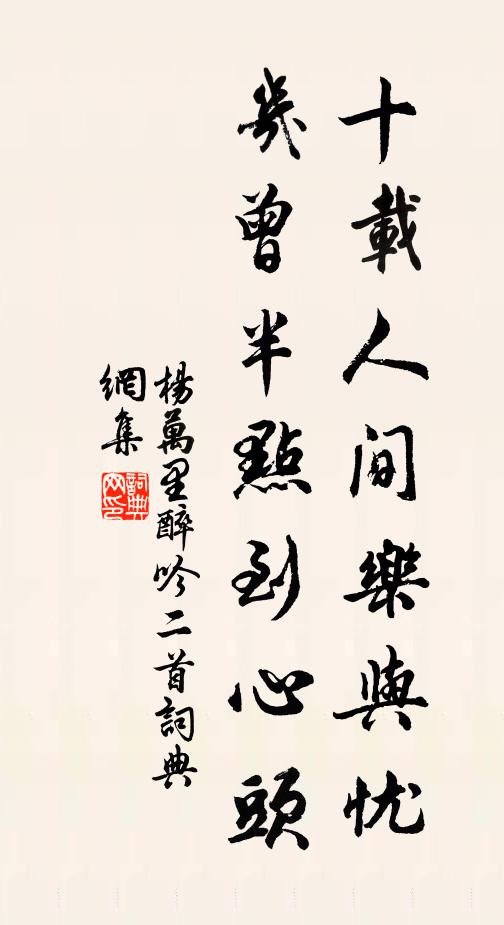 十載人间樂與忧
幾曾半點到心頭
楊萬里醉吟二首詞典
網集
詞典
网印